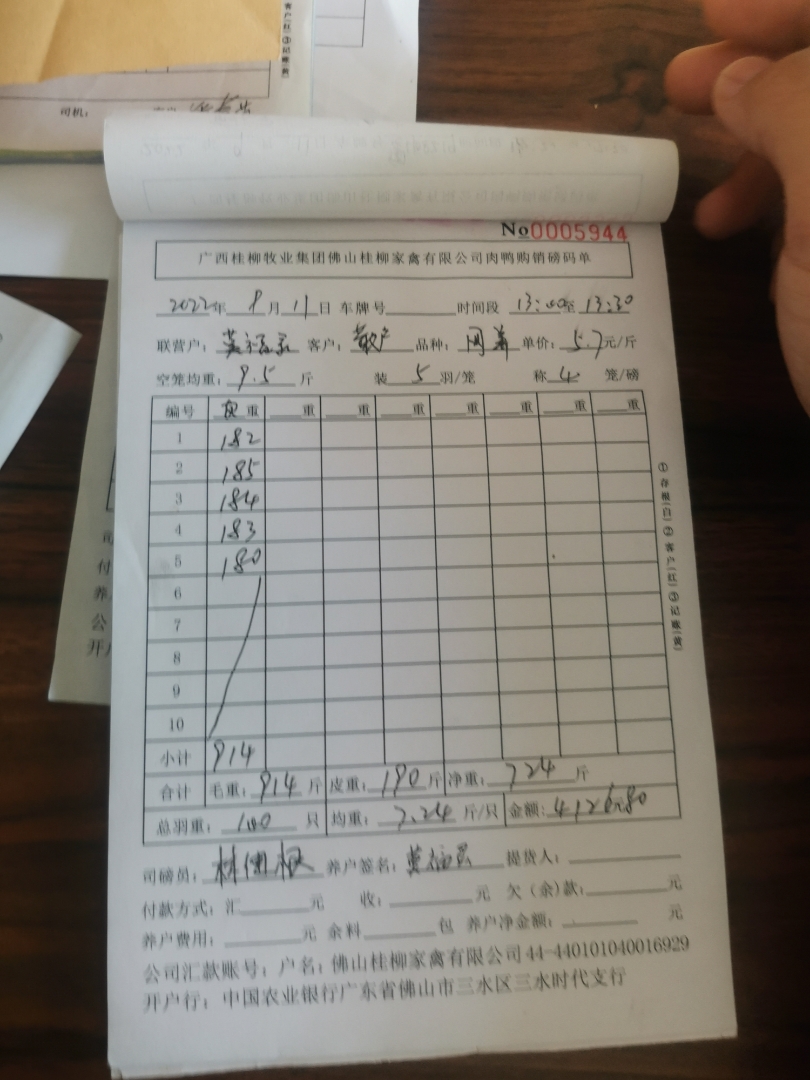 客户(红)③记账(黄)
司机:
№0005944
广西桂柳牧业集团佛山桂柳家禽有限公司肉鸭购销磅码单
2022年 8月 11日 车牌号 时间段 13:00至 13:30
联营户: 客户: 散户 品种: 单价: 5.7元/斤
空笼均重: 9.5 斤 装 5 羽/笼 称 4 笼/磅
编号 重 重 重 重 重 重 重 重
1 182
2 185
3 184
4 183
5 180
6
7
8
9
10
小计 914
合计 毛重: 914 斤 皮重: 190 斤 净重: 724 斤
总羽重: 100 只 均重: 7.24 斤/只 金额: 4126.80
司磅员: 养户签名: 提货人:
付款方式: 汇 元 收: 元 欠(余)款: 元
养户费用: 元 余料 包 养户净金额: 元
公司汇款账号: 户名: 佛山桂柳家禽有限公司 44-440101040016929
开户行: 中国农业银行广东省佛山市三水区三水时代支行
①存根(白)②客户(红)③记账(黄)
司
付
养
公
开户